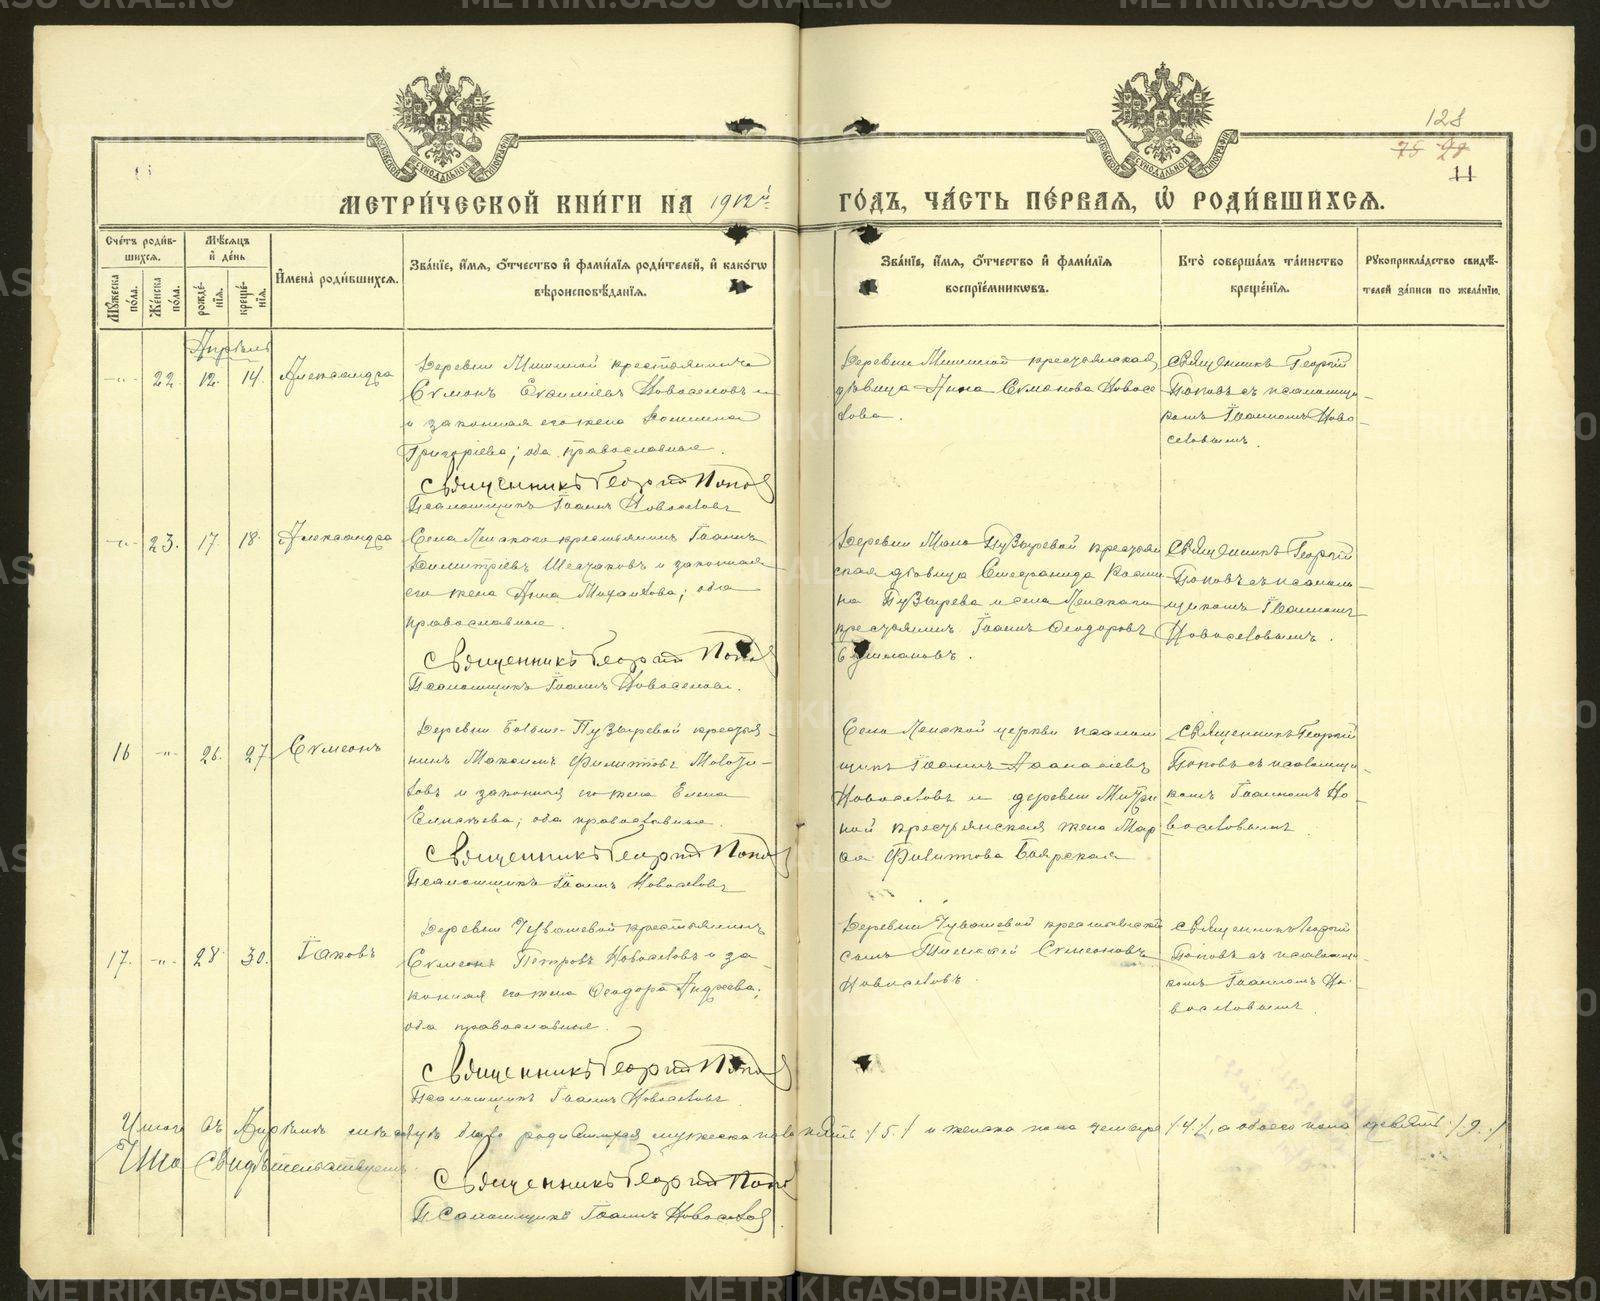 128
75 98
11
МЕТРИ́ЧЕСКОЙ КНИ́ГИ НА 1912й
ГО́ДЪ, ЧА́СТЬ ПЕ́РВАЯ, Ѡ҆ РОДИ́ВШИХСЯ.
Сче́тъ роди́вшихся.
Мꙋ́жеска по́ла.
Же́нска по́ла.
Мѣ́сяцъ и҆ де́нь
рожде́нїѧ.
креще́нїѧ.
И҆мена̀ роди́вшихсѧ.
Зва́нїе, и҆́мѧ, ѻ҆́тчество и҆ фами́лїѧ роди́телей, и҆ како́гѡ
вѣроисповѣ́данїѧ.
Зва́нїе, и҆́мѧ, ѻ҆́тчество и҆ фами́лїѧ
воспрїе́мникѡвъ.
Кто̀ соверша́лъ та́инство
креще́нїѧ.
Рꙋкоприкла́дство свидѣ́-
телей за́писи по жела́нїю.
Апрѣль
-"- 22. 12. 14. Александра
Деревни крестьянинъ
Сѵмонъ Евѳиміевъ Новоселовъ
и законная его жена
Григоріева; оба православные.
Священникъ Георгій Попов
Псаломщикъ Іоаннъ Новоселовъ
Деревни крестьянская
дѣвица Анна Сѵмонова Новосе
лова.
Священникъ Георгій
Поповъ съ псаломщи-
комъ Іоанномъ Ново-
селовымъ.
-"- 23. 17. 18. Александра
Села Ленскаго крестьянинъ Іоаннъ
Димитріевъ Шестаковъ и законная
его жена Анна Михаилова; оба
православные.
Священникъ Георгій Попов
Псаломщикъ Іоаннъ Новоселовъ.
Деревни Мало Пузыревой крестьян
ская дѣвица Стефанида Косми
на Пузырева и села Ленскаго
крестьянинъ Іоаннъ Ѳеодоровъ
Священникъ Георгій
Поповъ съ псалом-
щикомъ Іоанномъ
Новоселовымъ.
16 -"- 26. 27 Сѵмеонъ
Деревни Больше-Пузыревой крестья-
нинъ Максимъ Филипповъ
и законная его жена Елена
Елисѣева; оба православные.
Священникъ Георгій Попов
Псаломщикъ Іоаннъ Новоселовъ
Села Ленской церкви псалом
щикъ Іоаннъ Аѳанасіевъ
Новоселовъ и деревни
ной крестьянская жена Мар
ѳа Филиппова Боярская
Священникъ Георгій
Поповъ съ псаломщи-
комъ Іоанномъ Но-
воселовымъ
17. -"- 28. 30. Іаковъ
Деревни Чувашевой крестьянинъ
Сѵмеонъ Петровъ Новоселовъ и за-
конная его жена Ѳеодора Андреева;
оба православные.
Священникъ Георгій Попов
Псаломщикъ Іоаннъ Новоселовъ.
Деревни Чувашевой крестьянскій
сынъ Тимоѳей Сѵмеоновъ
Новоселовъ.
Священникъ Георгій
Поповъ съ псаломщи-
комъ Іоанномъ Но-
воселовымъ.
Итого въ Апрѣлѣ мѣсяцѣ было родившихся мужеска пола пять /5./ и женска пола четыре /4./, а обоего пола девять /9./
Что свидѣтельствуемъ.
Священникъ Георгій Попов
Псаломщикъ Іоаннъ Новоселов
METRIKI.GASO-URAL.RU